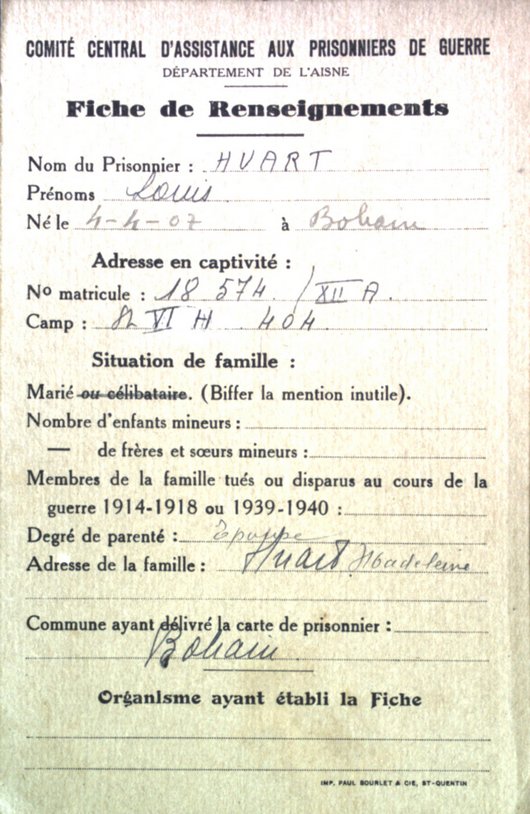 COMITÉ CENTRAL D'ASSISTANCE AUX PRISONNIERS DE GUERRE
DÉPARTEMENT DE L'AISNE
Fiche de Renseignements
Nom du Prisonnier : HUART
Prénoms Louis
Né le 4-4-07 à Bohain
Adresse en captivité :
No matricule : 18 574 / XII A.
Camp : VI H 404
Situation de famille :
Marié ou célibataire. (Biffer la mention inutile).
Nombre d'enfants mineurs :
— de frères et sœurs mineurs :
Membres de la famille tués ou disparus au cours de la
guerre 1914-1918 ou 1939-1940 :
Degré de parenté : Epouse
Adresse de la famille : Huart Madeleine
Commune ayant délivré la carte de prisonnier :
Bohain.
Organisme ayant établi la Fiche
IMP. PAUL BOURLET & CIE, ST-QUENTIN